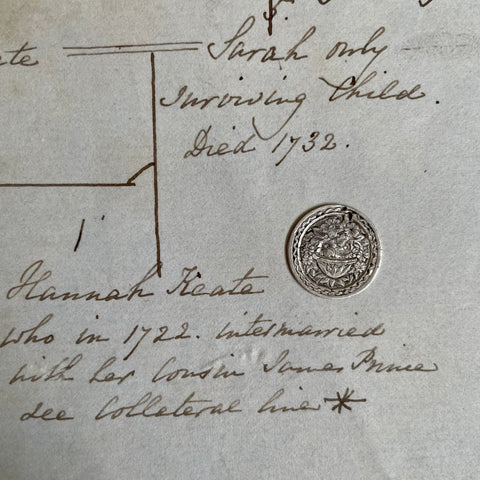 Sarah only
surviving Child.
Died 1732.
1
Hannah Keate
who in 1722. intermarried
with her Cousin James Prince
see Collateral line *